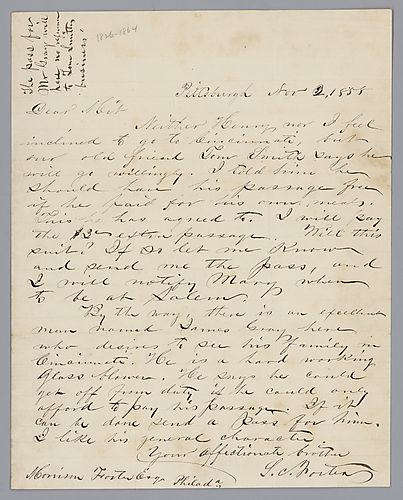 The pass for
Mr Gray will
have no reference
to Tom Smith's
business.
1826-1864
Pittsburgh Nov 2, 1858
Dear Mit
Neither Henry nor I feel
inclined to go to Cincinnati but
our old friend Tom Smith says he
will go willingly. I told him he
should have his passage free
if he paid for his own meals.
This he has agreed to. I will pay
the extra passage. Will this
suit? If so let me know
and send me the pass, and
I will notify Mary when
to be at Salem.
By the way, there is an excellent
man named James Gray here
who desires to see his family in
Cincinnati. He is a hard working
Glass blower. He says he could
get off from duty if he could only
afford to pay his passage. If it
can be done send a pass for him.
I like his general character
Your affectionate brother
S. C. Foster
Morrison Foster Esq Philada